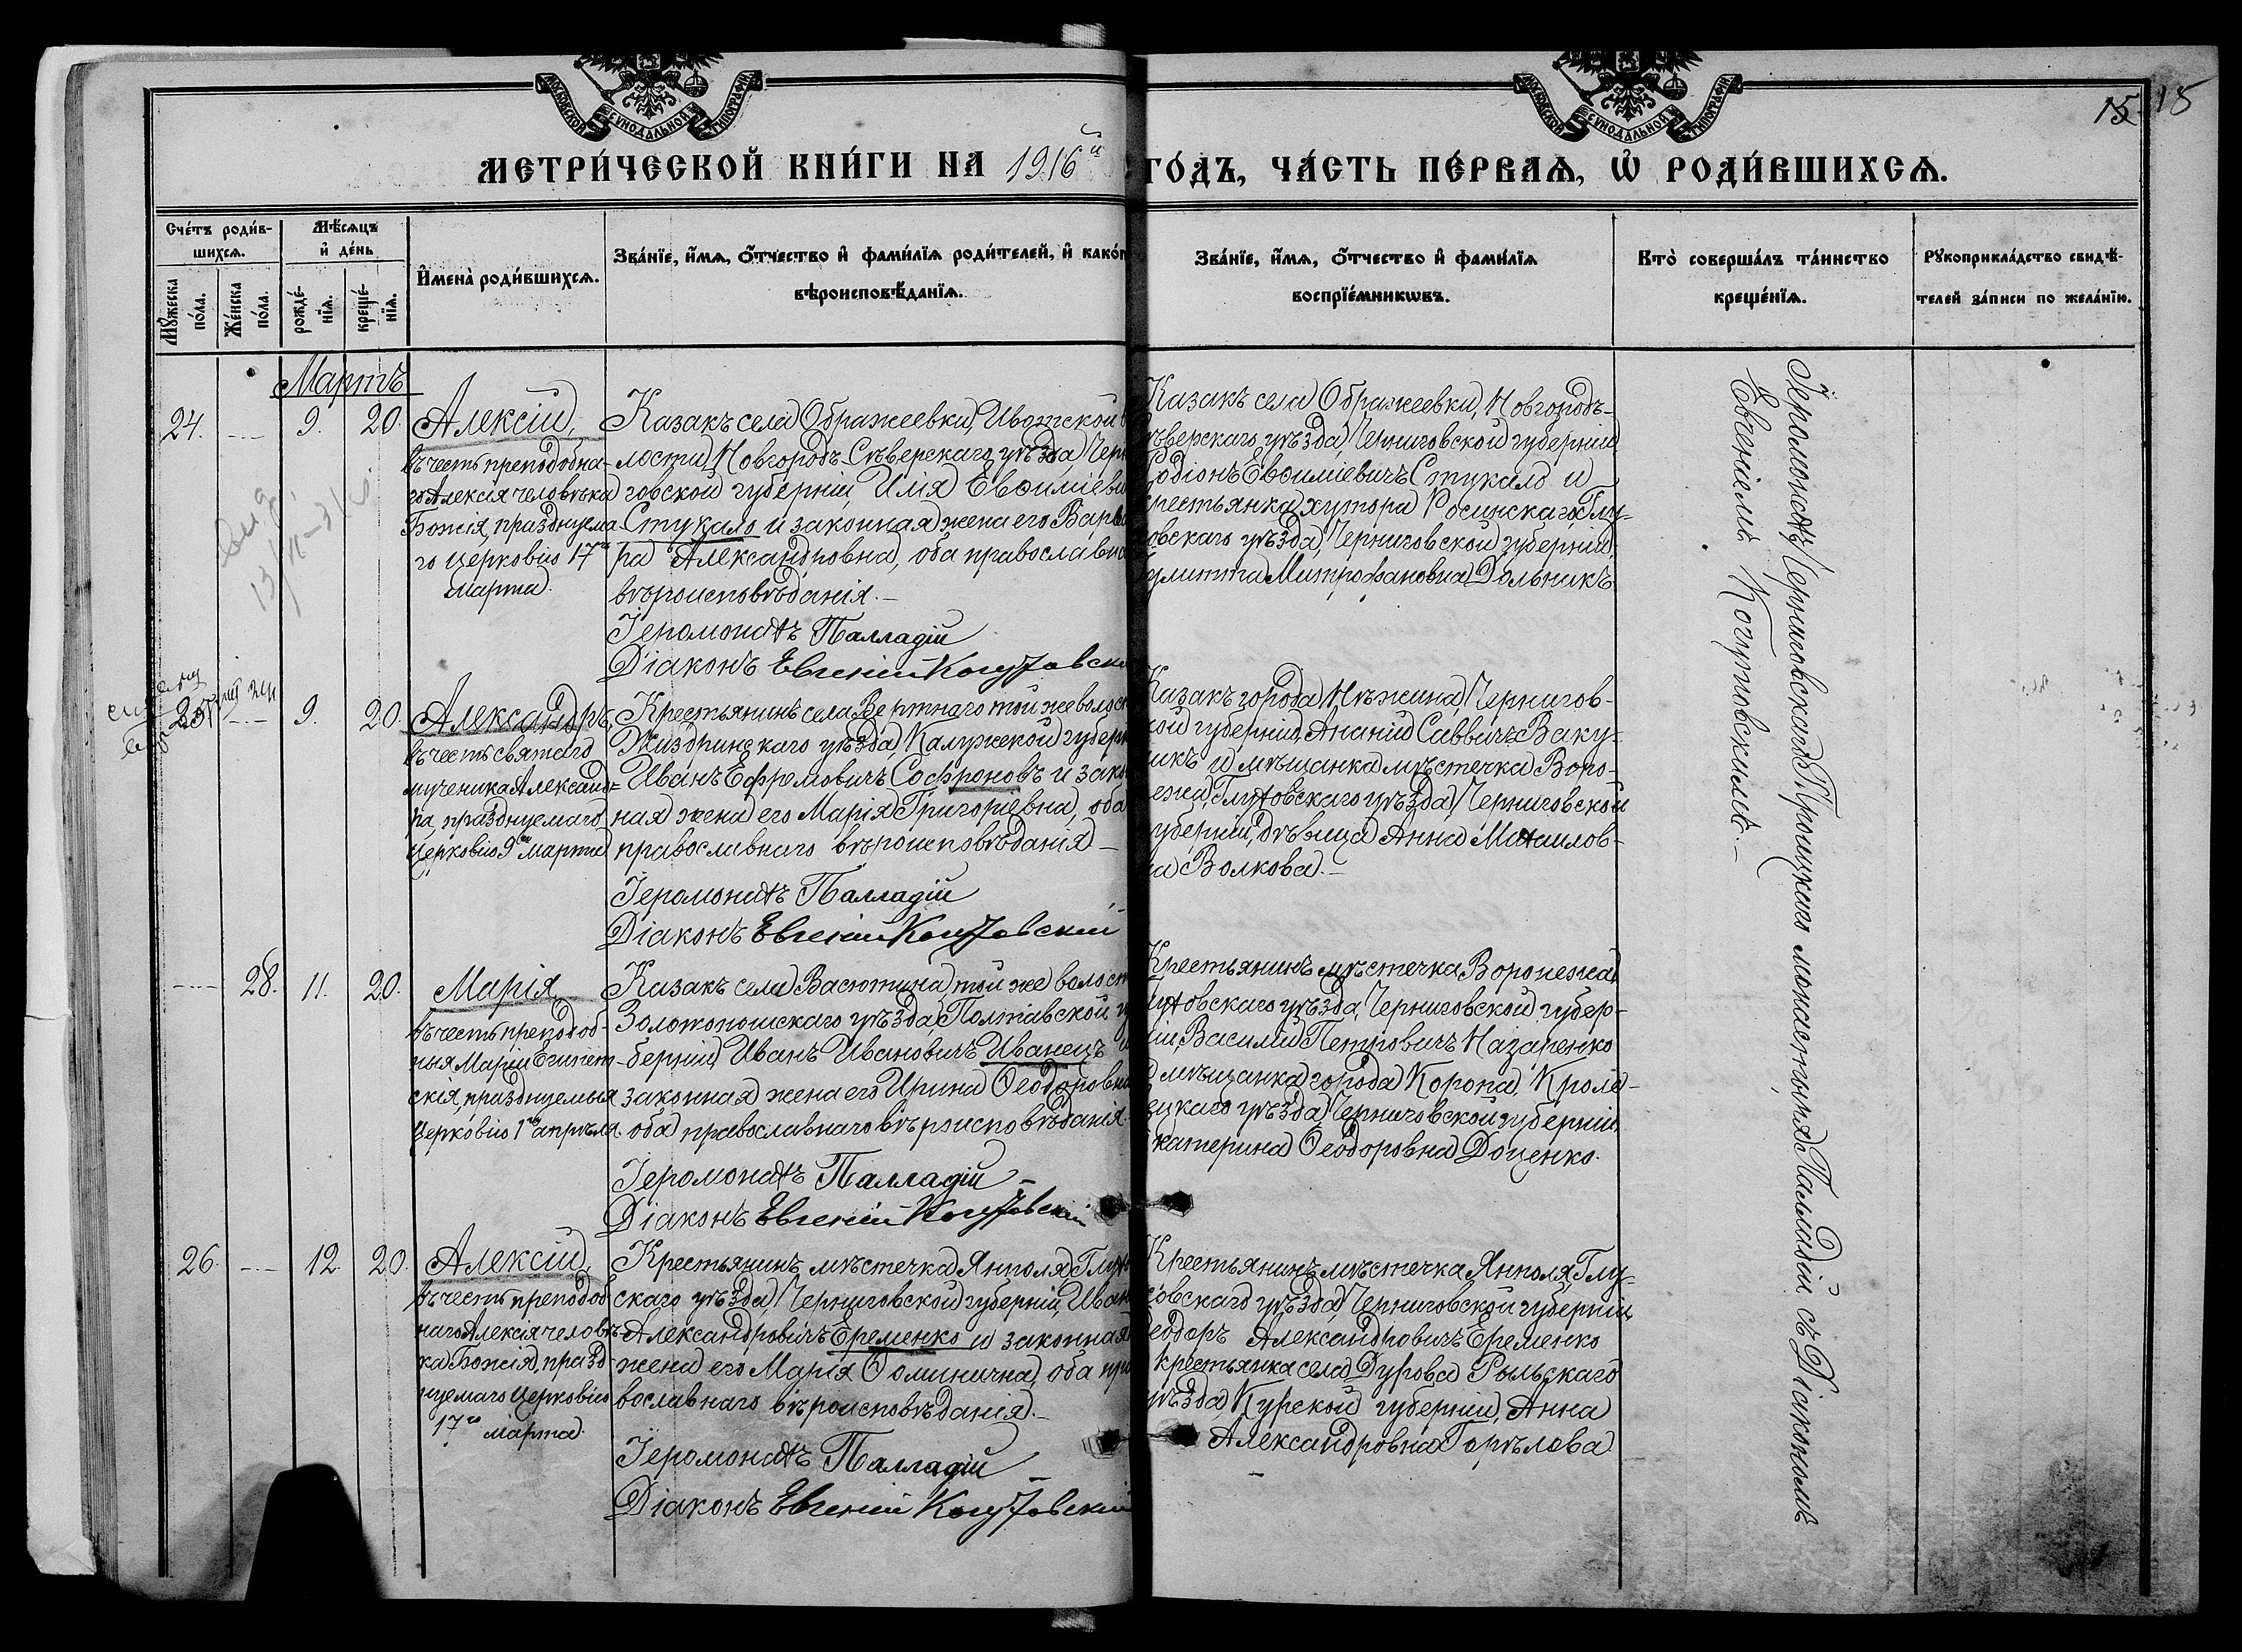 МОСКОВСКОЙ СѴНОДАЛЬНОЙ ТИПОГРАФІИ
МОСКОВСКОЙ СѴНОДАЛЬНОЙ ТИПОГРАФІИ
15 15
МЕТРИ́ЧЕСКОЙ КНИ́ГИ НА 1916й ГО́ДЪ, ЧА́СТЬ ПЕ́РВАѦ, Ѡ҆ РОДИ́ВШИХСѦ.
Сче́тъ роди́в-
шихсѧ.
Мꙋ́жеска по́ла.
Же́нска по́ла.
Мѣ́сѧцъ
и҆ де́нь
рожде́-
нїѧ.
креще́-
нїѧ.
И҆мена̀ роди́вшихсѧ.
Зва́нїе, и҆́мѧ, ѻ҆́тчество и҆ фами́лїѧ роди́телей, и҆ како́г
вѣроисповѣ́данїѧ.
Зва́нїе, и҆́мѧ, ѻ҆́тчество и҆ фами́лїѧ
воспрїе́мникѡвъ.
Кто̀ соверша́лъ та́инство
креще́нїѧ.
Рꙋкоприкла́дство свидѣ́-
телей за́писи по жела́нїю.
Мартъ
24. 9. 20.
Алексій,
въ честь преподобна-
го Алексія человѣка
Божія, празднуема
го церковію 17го
марта.
Казакъ села Ображеевки, Ивотской в
лости, Новгородъ-Сѣверскаго уѣзда, Черн
говской губерніи, Илія Евѳиміеви
Стукало и законная жена его Варва
ра Александровна, оба православна
вѣроисповѣданія.
Іеромонахъ Палладій
Діаконъ Евгеній Когутовски
Казакъ села Ображеевки, Новгородъ-
ѣверскаго уѣзда, Черниговской губерніи,
Родіонъ Евѳиміевичъ Стукало и
крестьянка хутора Росинскаго, Глу-
овскаго уѣзда, Черниговской губерніи,
улитта Митрофановна Дольникъ
25 9. 20.
Александръ,
въ честь святаго
мученика Александ-
ра, празднуемаго
церковію 9го марта
Крестьянинъ села Вертнаго той же волост
Жиздринскаго уѣзда, Калужской губерн
Иванъ Ефремовичъ Софроновъ и зако
ная жена его Марія Григоріевна, оба
православнаго вѣроисповѣданія
Іеромонахъ Палладій
Діаконъ Евгеній Когутовскій
Казакъ города Нѣжина, Чернигов-
кой губерніи, Ананій Саввичъ Ваку-
икъ и мѣщанка мѣстечка Воро-
ежа, Глуховскаго уѣзда, Черниговской
уберніи, дѣвица Анна Михаилов-
на Волкова.
28. 11. 20.
Марія,
въ честь преподоб-
ныя Маріи Египет-
скія, празднуемыя
церковію 1го апрѣля.
Казакъ села Васютина, той же волост
Золотоношскаго уѣзда, Полтавской гу
берніи, Иванъ Ивановичъ Иванецъ и
законная жена его Ирина Ѳеодоровна
оба православнаго вѣроисповѣданія.
Іеромонахъ Палладій
Діаконъ Евгеній Когутовскій
Крестьянинъ мѣстечка Воронежа,
луховскаго уѣзда, Черниговской губер-
ніи, Василій Петровичъ Назаренко
мѣщанка города Коропа, Кроле-
ецкаго уѣзда, Черниговской губерніи,
катерина Ѳеодоровна Доценко.
26. 12. 20.
Алексій,
въ честь преподоб
наго Алексія человѣ-
ка Божія, празд-
нуемаго церковію
17го марта.
Крестьянинъ мѣстечка Янполя, Глухо
скаго уѣзда, Черниговской губерніи, Иван
Александровичъ Еременко и законная
жена его Марія Ѳоминична, оба пра
вославнаго вѣроисповѣданія.
Іеромонахъ Палладій
Діаконъ Евгеній Когутовскій
Крестьянинъ мѣстечка Янполя, Глу-
ховскаго уѣзда, Черниговской губерніи,
еодоръ Александровичъ Еременко
крестьянка села Дурова Рыльскаго
уѣзда, Курской губерніи, Анна
Александровна Горѣлова
Іеромонахъ Черниговскаго Троицкаго монастыря Палладій съ Діакономъ
Евгеніемъ Когутовскимъ.